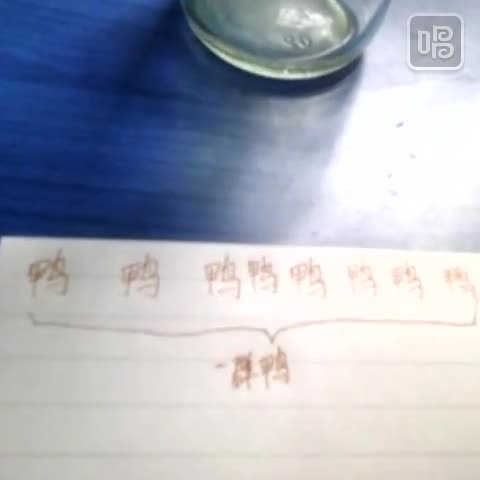 唱
鸭 鸭 鸭鸭鸭 鸭鸭 鸭
一群鸭